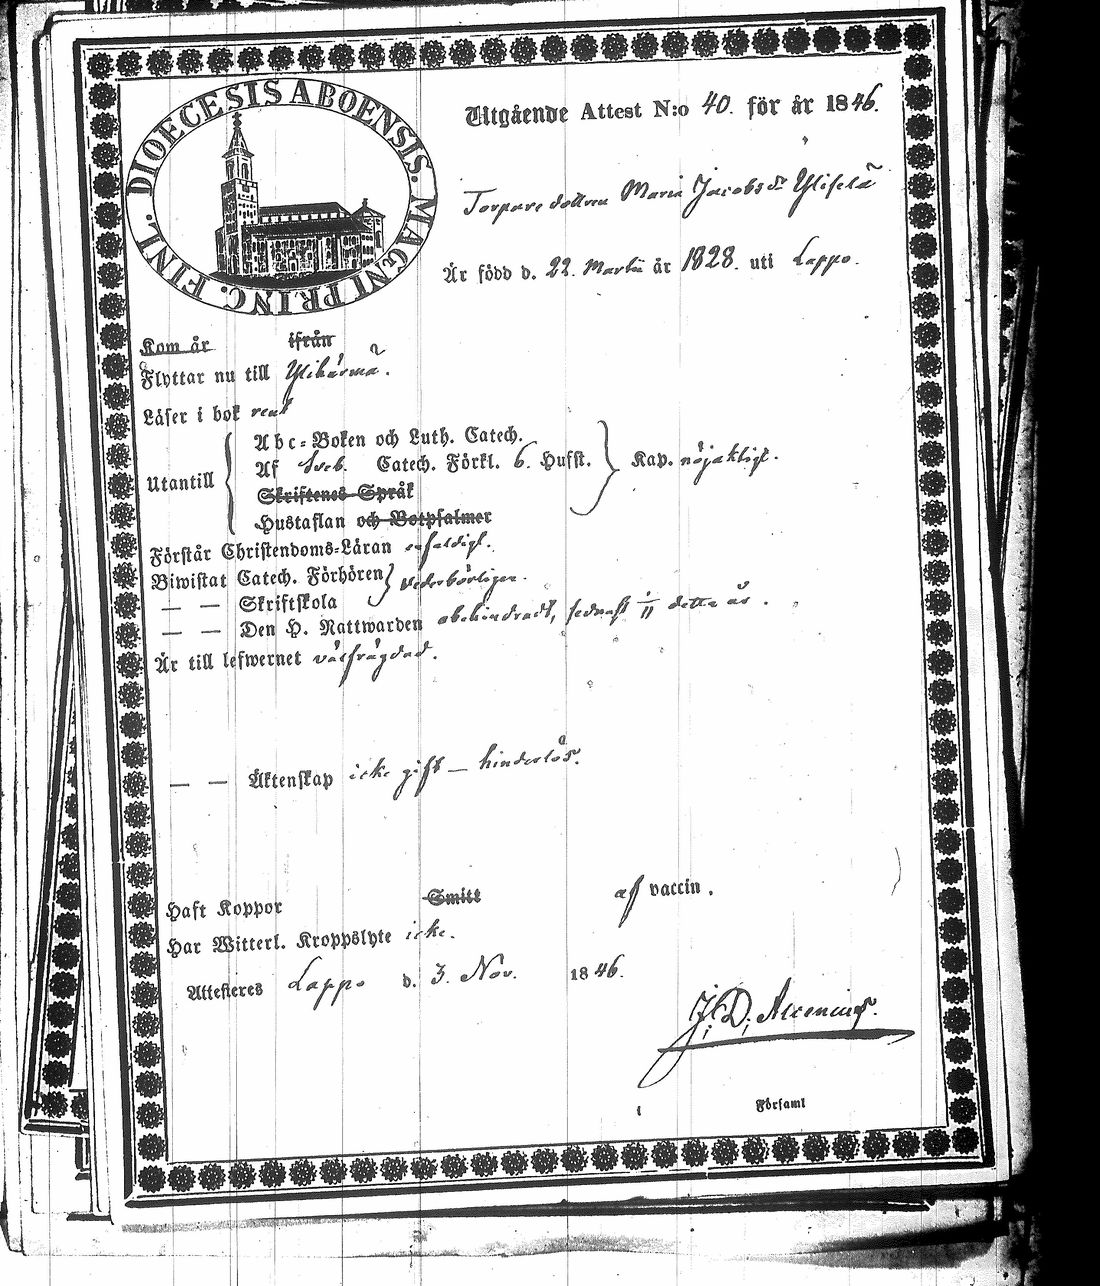 DIOECESIS ABOENSIS. MAGNI PRINC. FINL.
Utgående Attest N:o 40. för år 1846.
Torpare dottren Maria Jacobs dr Ylipelä
Är född d. 22. Martii år 1828. uti Lappo.
Kom år ifrån
Flyttar nu till Ylihärmä.
Läser i bok rent
Utantill
Abc-Boken och Luth. Catech.
Af Sveb. Catech. Förkl. 6. Hufst. Kap. nöjaktigt.
Skriftenes Språk
Hustaflan och Botpsalmer
Förstår Christendoms-Läran enfaldigt.
Biwistat Catech. Förhören vederbörligen.
— — Skriftskola
— — Den H. Nattwarden obehindradt, sednast 1/11 detta år.
Är till lefwernet välfrägdad.
— — Äktenskap icke gift — hinderlös.
Haft Koppor Smitt af vaccin.
Har Witterl. Kroppslyte icke.
Attesteras Lappo d. 3. Nov. 1846.
J. D. Alcenius.
i Församl